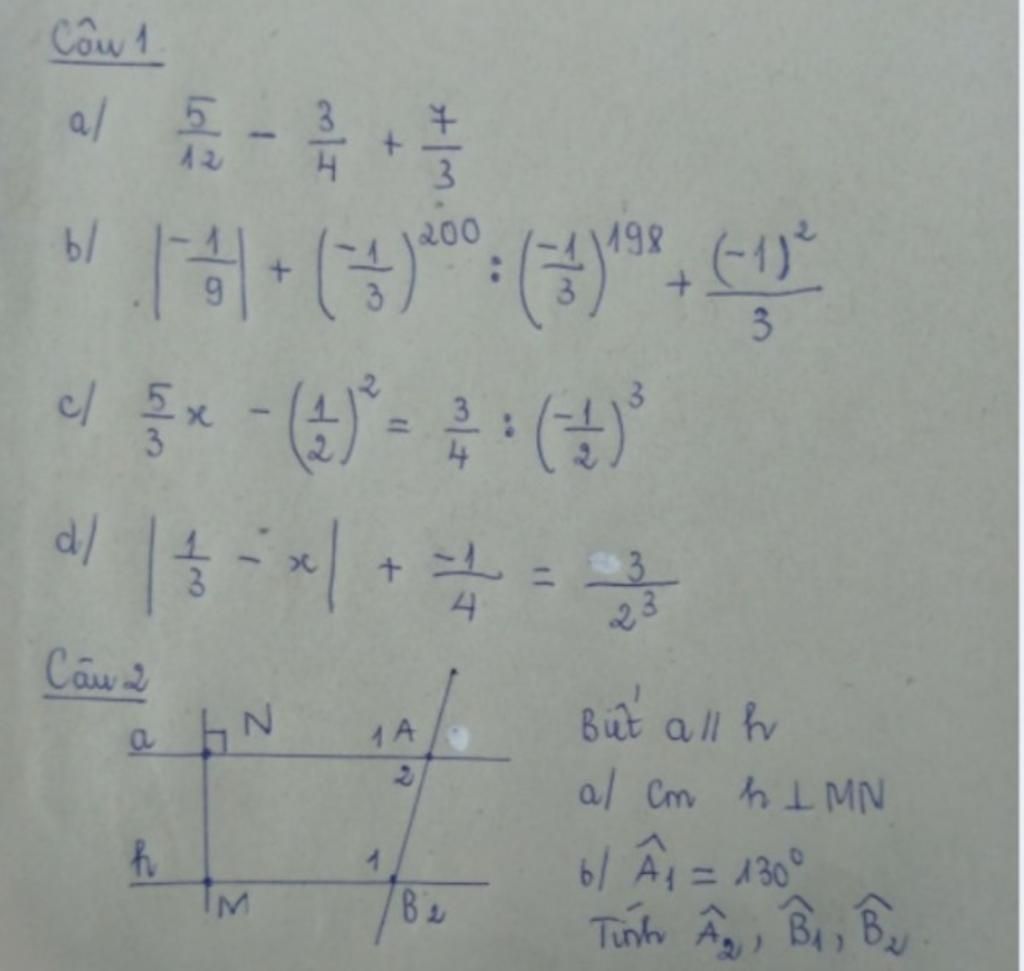 Câu 1
a/ 5/12 - 3/4 + 7/3
b/ |-1/9| + (-1/3)^200 : (-1/3)^198 + (-1)^2/3
c/ 5/3 x - (1/2)^2 = 3/4 : (-1/2)^3
d/ |1/3 - x| + -1/4 = 3/2^3
Câu 2
a N 1 A
2
h 1
M B 2
Biết a // h
a/ Cm h ⊥ MN
b/ Â1 = 130°
Tính Â2, B̂1, B̂2.